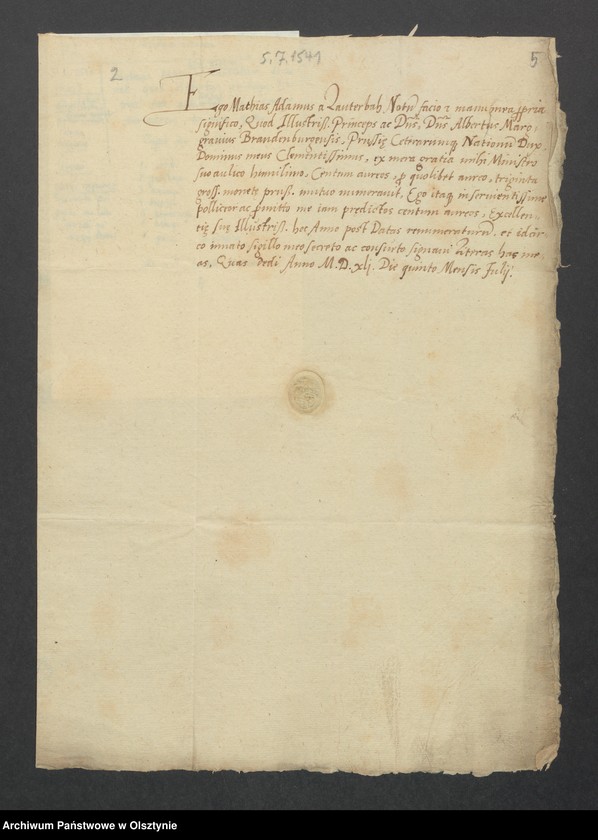 5.7.1541
5
2
Ego Mathias Adamus a Lauterbah Notū facio et manu mea ppria
significo, Quod Illustriss. Princeps ac Dns, Dns Albertus Mar-
gravius Brandenburgensis, Prussię Ceterarumq Nationū Dux
Dominus meus Clementissimus, ex mera gratia mihi Ministro
suo aulico humilimo, Centum aureos, p quolibet aureo, triginta
gross. monetę pruss. mutuo numeravit. Ego itaq inservientissime
polliceor ac pmitto me iam predictos centum aureos, Excellen-
tię Suę Illustriss. hoc Anno post Datas renumeraturū. et idcir-
co innato sigillo meo secreto ac consueto signavi Literas has me
as. Quas dedi Anno M.D.xlj. Die quinto Mensis Julij.
Archiwum Państwowe w Olsztynie